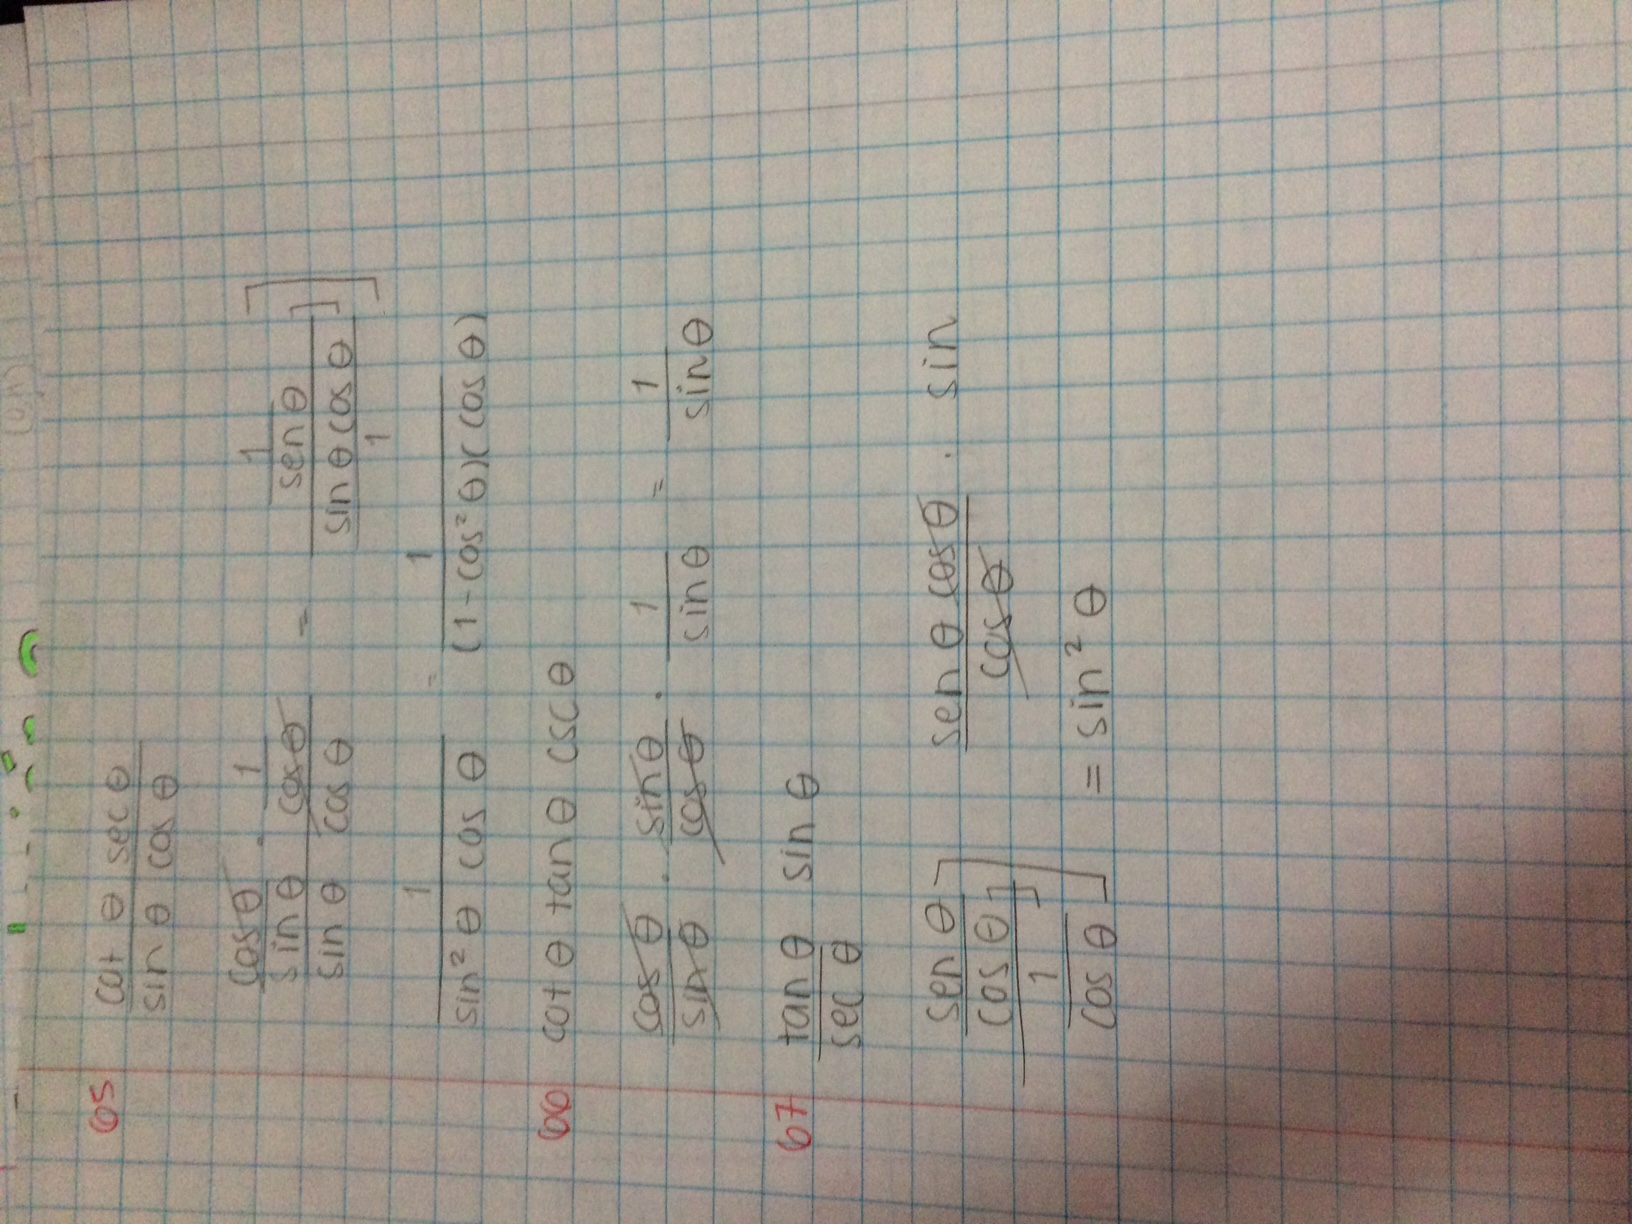 65 cot θ sec θ
sin θ cos θ
cos θ · 1
sin θ cos θ = 1
sin θ cos θ sen θ
sin θ cos θ
1
1 = 1
sin² θ cos θ (1 - cos² θ)(cos θ)
66 cot θ tan θ csc θ
cos θ · sin θ · 1 = 1
sin θ cos θ sin θ sin θ
67 tan θ sin θ
sec θ
sen θ sen θ cos θ · sin
cos θ cos θ
1
cos θ = sin² θ